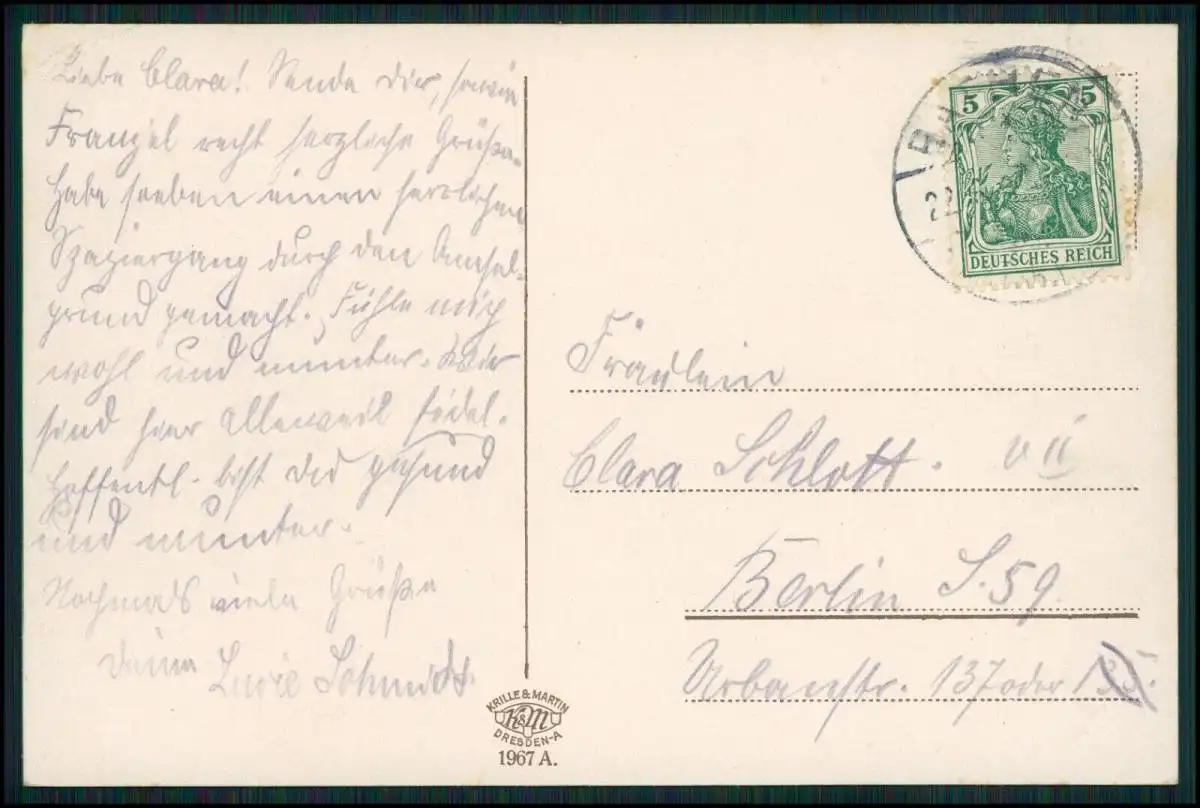 Liebe Clara! Sende dir, sowie
Franzel recht herzliche Grüße.
Habe soeben einen herrlichen
Spaziergang durch den Amsel-
grund gemacht. Fühle mich
wohl und munter. Wir
sind hier allerweil fidel.
Hoffentl. bist Du gesund
und munter.
Nochmals viele Grüße
deine Lucie Schmidt.
5 5
DEUTSCHES REICH
22
Fräulein
Clara Schlott. v II
Berlin S. 59
Urbanstr. 137 oder 135.
KRILLE & MARTIN
K&M
DRESDEN-A
1967 A.